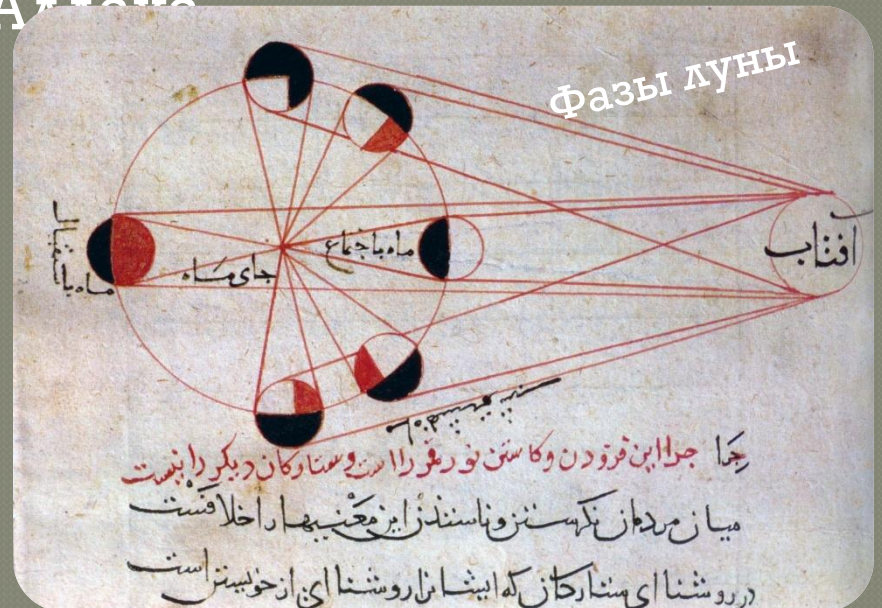 Фазы луны
افتاب
ماه باجتماع
جای ماه
ماه باستقبال
چرا این فزودن و کاستن نور قمر را است و ستارکان دیکر را نیست
میان مردمان نکرستن و ناسندن این معنیها را خلافست
در روشنا ای ستارکان که ایشانرا روشنا ای از خویشتن است